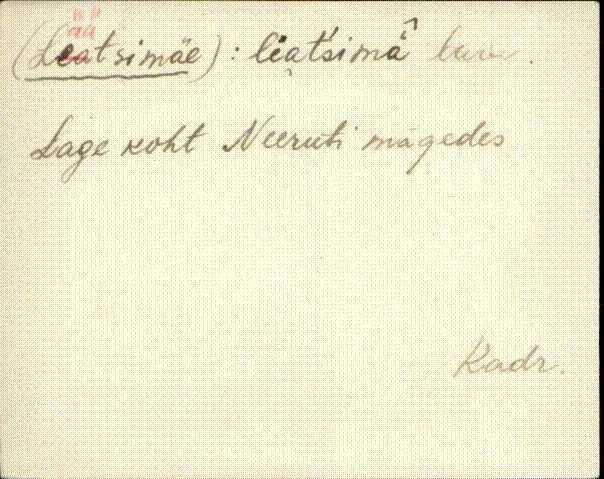 ää
(Leatsimäe) : leat́simä
Lage koht Neeruti mägedes
Kadr.